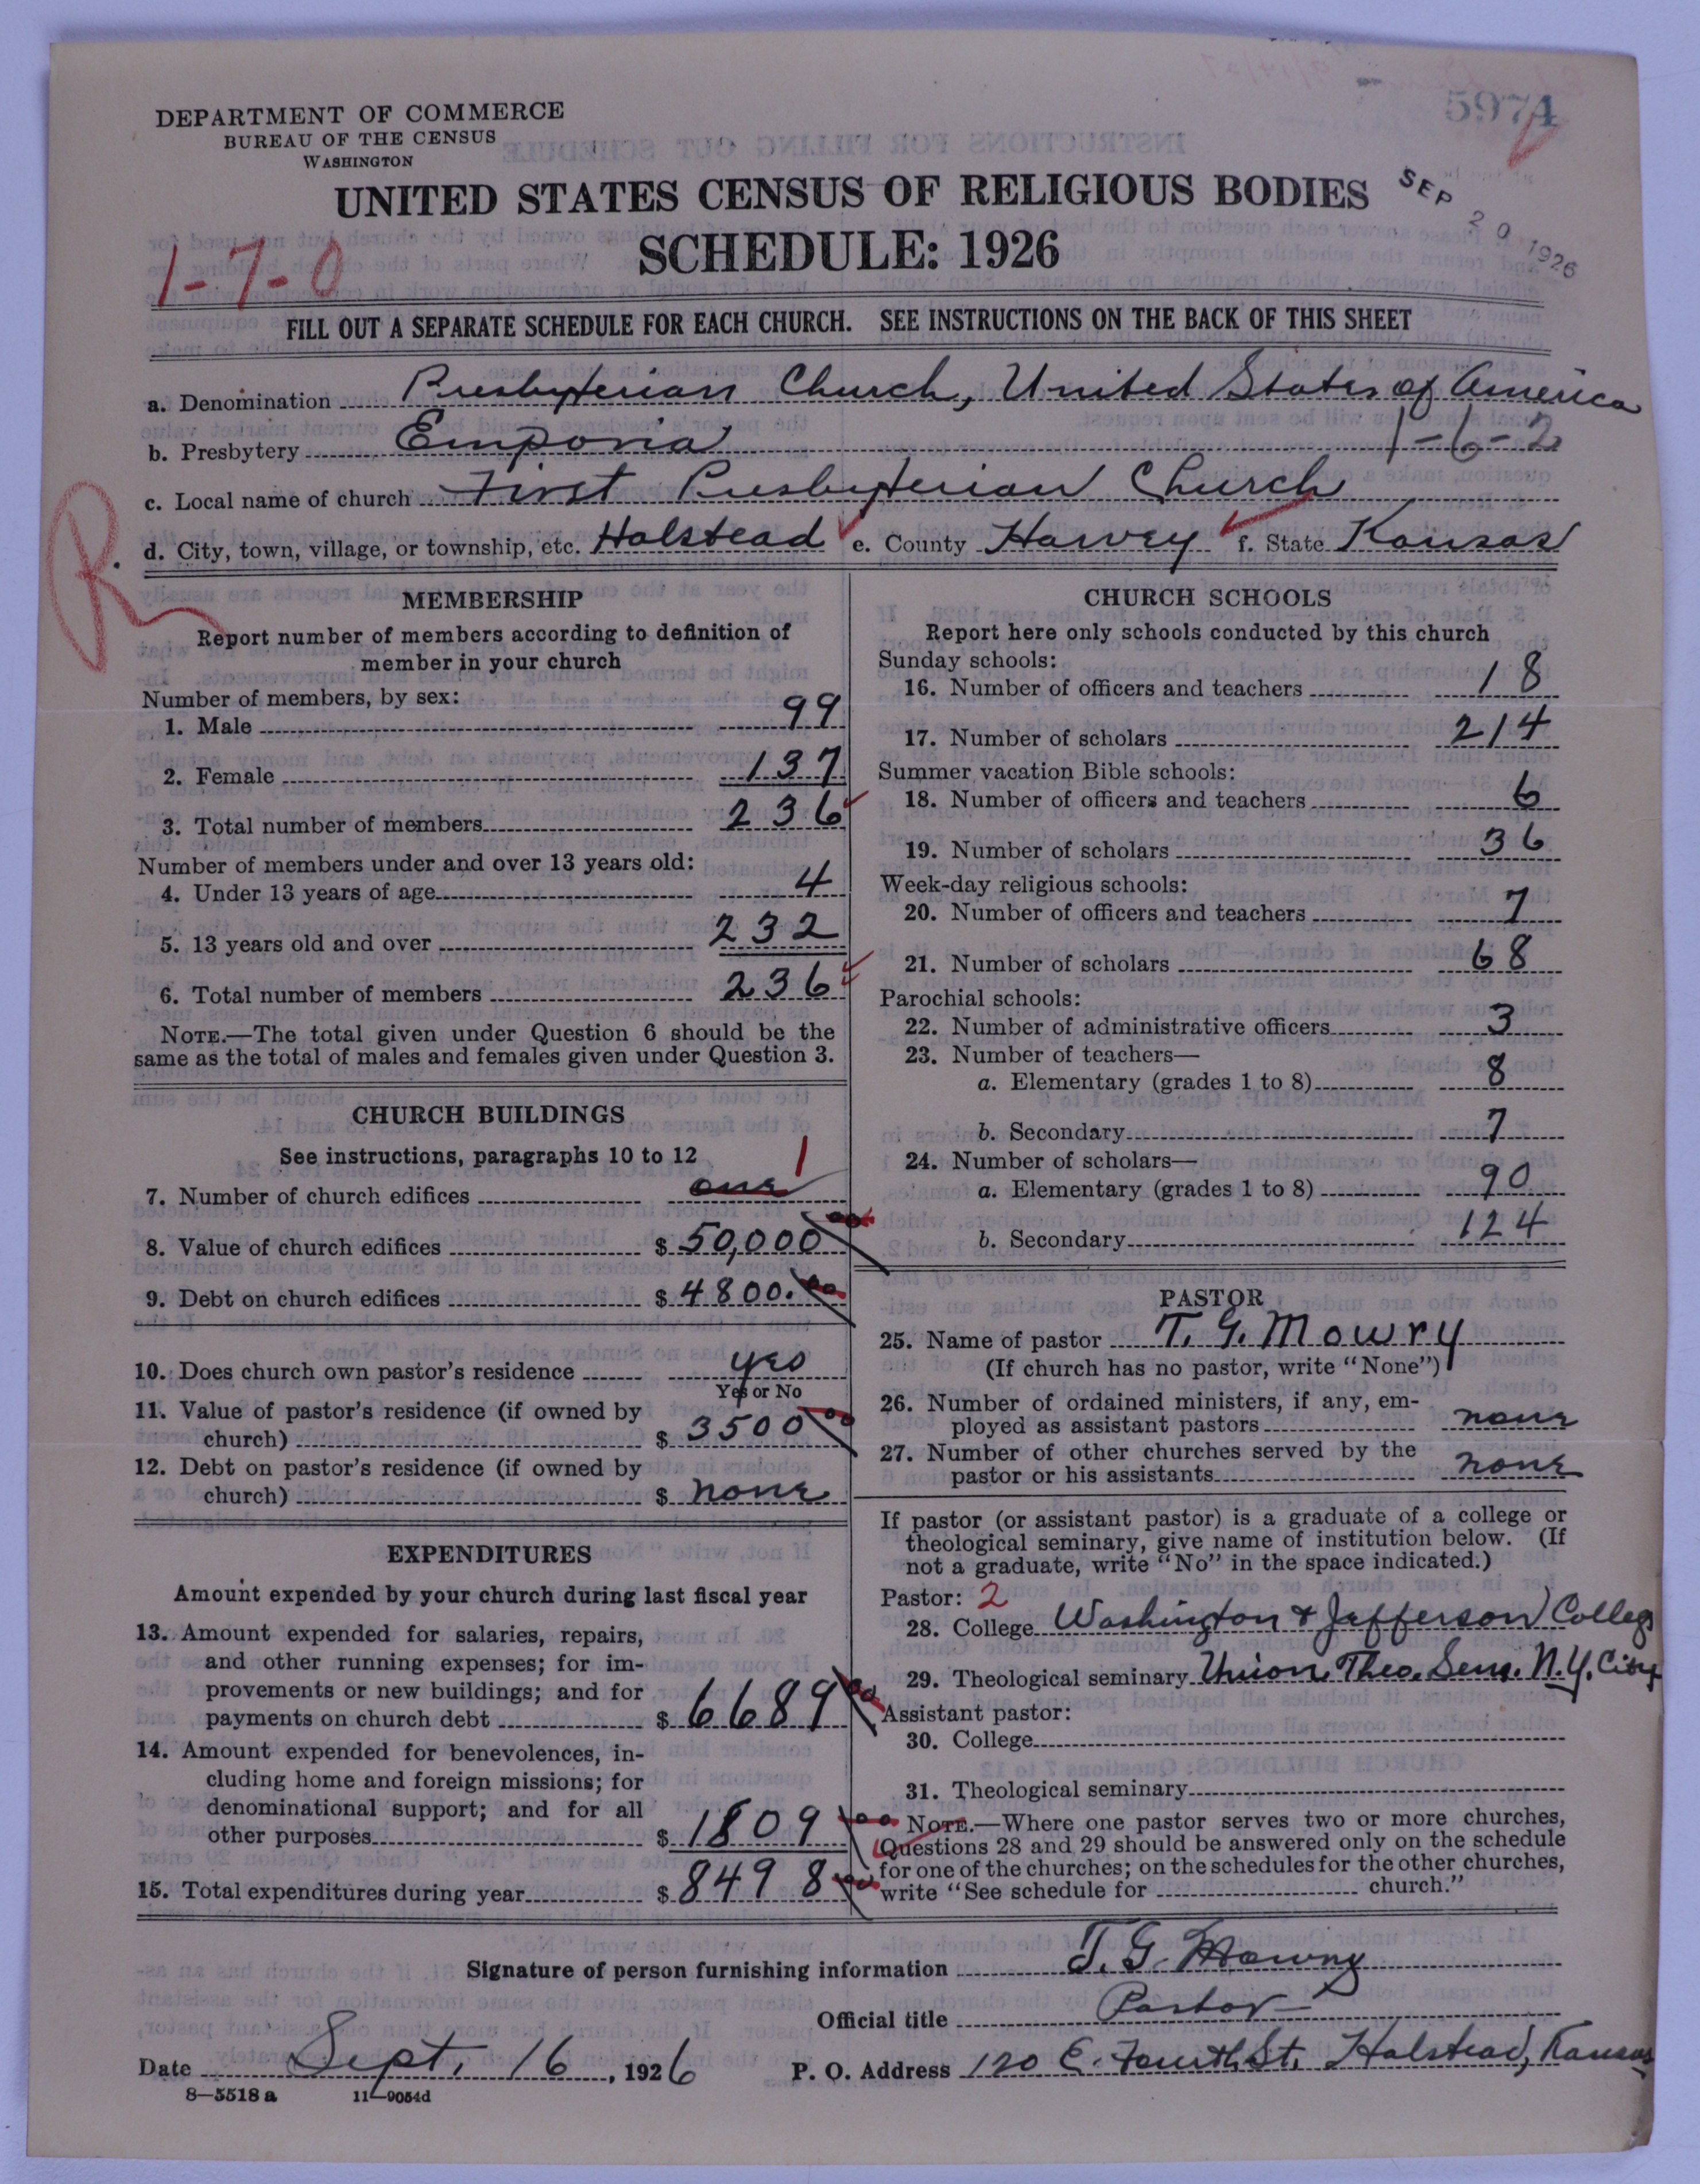 5974
DEPARTMENT OF COMMERCE
BUREAU OF THE CENSUS
WASHINGTON
UNITED STATES CENSUS OF RELIGIOUS BODIES
SEP 20 1926
SCHEDULE: 1926
1-7-0
FILL OUT A SEPARATE SCHEDULE FOR EACH CHURCH. SEE INSTRUCTIONS ON THE BACK OF THIS SHEET
a. Denomination Presbyterian Church, United States of America
b. Presbytery Emporia 1-6-2
c. Local name of church First Presbyterian Church
R
d. City, town, village, or township, etc. Halstead e. County Harvey f. State Kansas
MEMBERSHIP
Report number of members according to definition of
member in your church
Number of members, by sex:
1. Male 99
2. Female 137
3. Total number of members 236
Number of members under and over 13 years old:
4. Under 13 years of age 4
5. 13 years old and over 232
6. Total number of members 236
NOTE.—The total given under Question 6 should be the
same as the total of males and females given under Question 3.
CHURCH BUILDINGS
See instructions, paragraphs 10 to 12
1
7. Number of church edifices one
8. Value of church edifices $ 50,000 00
9. Debt on church edifices $ 4800. 00
10. Does church own pastor's residence yes
Yes or No
11. Value of pastor's residence (if owned by
church) $ 3500 00
12. Debt on pastor's residence (if owned by
church) $ none
EXPENDITURES
Amount expended by your church during last fiscal year
13. Amount expended for salaries, repairs,
and other running expenses; for im-
provements or new buildings; and for
payments on church debt $ 6689 00
14. Amount expended for benevolences, in-
cluding home and foreign missions; for
denominational support; and for all
other purposes $ 1809 00
15. Total expenditures during year $ 8498 00
CHURCH SCHOOLS
Report here only schools conducted by this church
Sunday schools:
16. Number of officers and teachers 18
17. Number of scholars 214
Summer vacation Bible schools:
18. Number of officers and teachers 6
19. Number of scholars 36
Week-day religious schools:
20. Number of officers and teachers 7
21. Number of scholars 68
Parochial schools:
22. Number of administrative officers 3
23. Number of teachers—
a. Elementary (grades 1 to 8) 8
b. Secondary 7
24. Number of scholars—
a. Elementary (grades 1 to 8) 90
b. Secondary 124
PASTOR
25. Name of pastor T. G. Mowry
(If church has no pastor, write "None")
26. Number of ordained ministers, if any, em-
ployed as assistant pastors none
27. Number of other churches served by the
pastor or his assistants none
If pastor (or assistant pastor) is a graduate of a college or
theological seminary, give name of institution below. (If
not a graduate, write "No" in the space indicated.)
Pastor: 2
28. College Washington & Jefferson College
29. Theological seminary Union Theo. Sem. N.Y. City
Assistant pastor:
30. College
31. Theological seminary
NOTE.—Where one pastor serves two or more churches,
Questions 28 and 29 should be answered only on the schedule
for one of the churches; on the schedules for the other churches,
write "See schedule for church."
Signature of person furnishing information T. G. Mowry
Official title Pastor
Date Sept. 16, 1926 P. O. Address 120 E. Fourth St. Halstead, Kansas
8—5518 a 11—9054d